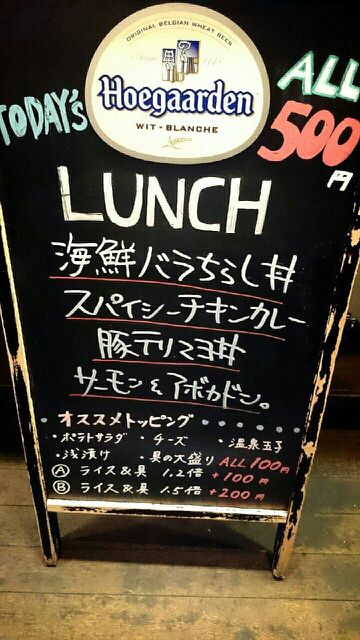 ORIGINAL BELGIAN WHEAT BEER
Hoegaarden
WIT-BLANCHE
TODAY's
ALL
500円
LUNCH
海鮮バラちらし丼
スパイシーチキンカレー
豚テリマヨ丼
サーモン&アボカドン。
オススメトッピング
・ポテトサラダ ・チーズ ・温泉玉子
・浅漬け ・具の大盛り ALL 100円
Ⓐ ライス&具 1.2倍 +100円
Ⓑ ライス&具 1.5倍 +200円